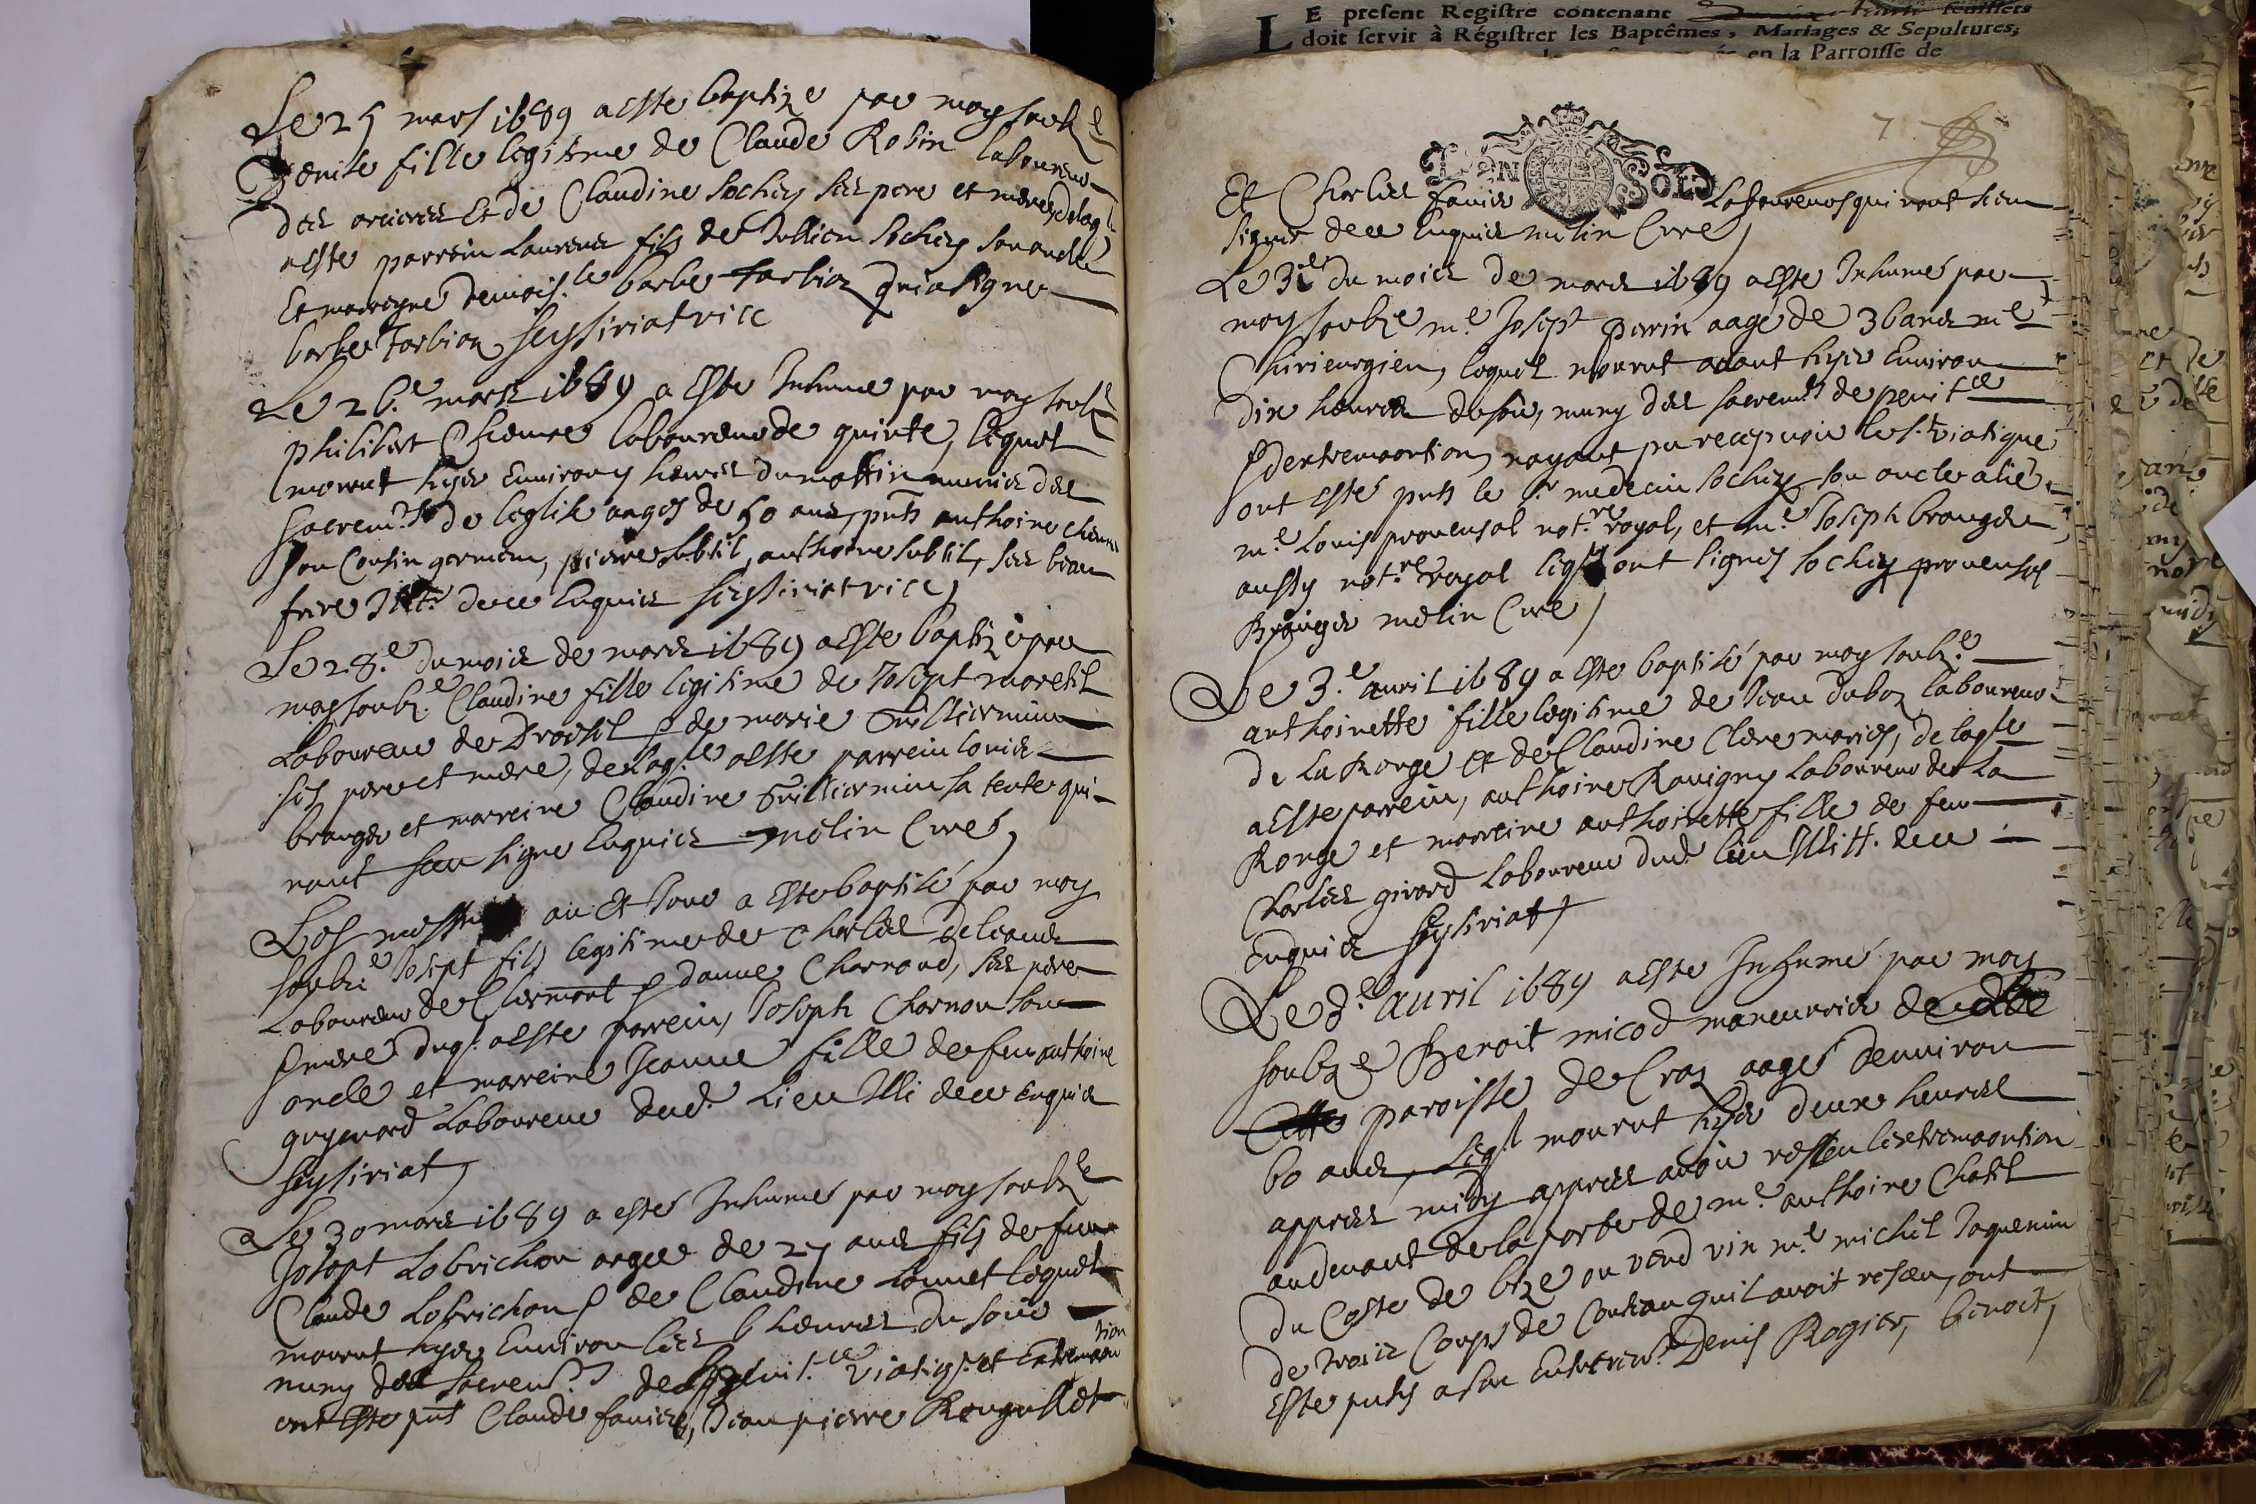 Le 25 mars 1689 a este baptize par moy soubz.e
Denise fille legitime de Claude Robin laboureur
des orcieres Et de Claudine Sochay ses pere et mere, delaq.le
a este parrein Laurens fils de Jullien Sochay son oncle
Et marreyne Demois.le barbe Tarbion qui a signe
barbe Tarbion Seyssiriat vice
Le 26.e mars 1689 a Este Inhume par moy soubz.e
philibert laboureur de quinte, lequel
mourut hyer Environ 5 heures du mattin munis des
sacrem.ts de leglise aages de 50 ans, pnts anthoine
son Cousin germain, pierre subtil, anthoine subtil, ses beau
frere Illt. de ce Enquis Seyssiriat vice
Le 28.e du mois de mars 1689 a este baptize par
moy soubz.e Claudine fille legitime de Josept moretil
Laboureur de & de marie Guilliermin
ses pere et mere, de laq.le a este parrein Louis
branges et marreine Claudine Guilliermin sa tente qui
n'ont sceu signe Enquis mêlin Cure,
Les an Et Jour a Este baptisé par moy
soubz.e Josept fils legitime de Charles
Laboureur de Clermont & Charnod, ses pere
& mere duq.l a este parrein, Joseph Charnou son
oncle et marreine Jeanne fille de feu anthoine
guyenard Laboureur dud. Lieu Illi de ce Enquis
Seyssiriat,
Le 30 mars 1689 a esté Inhumé par moy soubz.e
Josept Lobrichon aagee de 27 ans fils de feu
Claude Lobrichon & de Claudine Lonnet lequel
mourut hyer Environ les 6 heures du soir
muny des sacrem.ts de penit.ce viatiq. et Extremaon
tion
ont Este pnt Claude favier, Jean pierre Rouguillet
LE present Registre contenant feuillets
doit servir à Régistrer les Baptêmes, Mariages & Sepultures,
en la Parroisse de
7
DEN SOLS
Et Charles favier Laboureurs qui n'ont sceu
signer de ce Enquis mêlin Cure,
Le 31.e du mois de mars 1689 a este Inhumé par
moy soubz.e m.e Josept perrin aagé de 36 ans m.e
Chirieurgien, lequel mourut avant hyer Environ
dix heures du soir, muny des sacrem.ts de penit.ce
& dextremaontion, nayant pu recepvoir le s.t viatique
ont Esté pnts le s.r medecin Sochay son oncle alié,
m.e Louis provensal not.re royal, et m.e Joseph branges
aussy not.re royal lesq. ont signes Sochay provensal
Branges mêlin Cure
Le 3.e avril 1689 a este baptisé par moy soubz.e
anthoinette fille legitime de Jean duboz laboureur
de La Ronge et de Claudine Clere maries, de laq.le
a Este parrein, anthoine Ravigny Laboureur de La
Ronge et marreine anthoinette fille de feu
Charles girard Laboureur dud. lieu Illitt. de ce
Enquis Seyssiriat
Le 8.e avril 1689 a este Inhumé par moy
soubz.e Benoit micod maneuvrier de
Cette paroisse de Croz aagé denviron
60 ans, Leq.l mourut hyer deux heures
appres midy appres avoir ressu lextremaontion
au devant de la porte de m.e anthoine Chatel
du Coste de bize ou vend vin m.e michel Jaquemin
de trois Coups de Couteau quil avoit reseu, ont
Este pnts a son Denis Rogier, benoit,